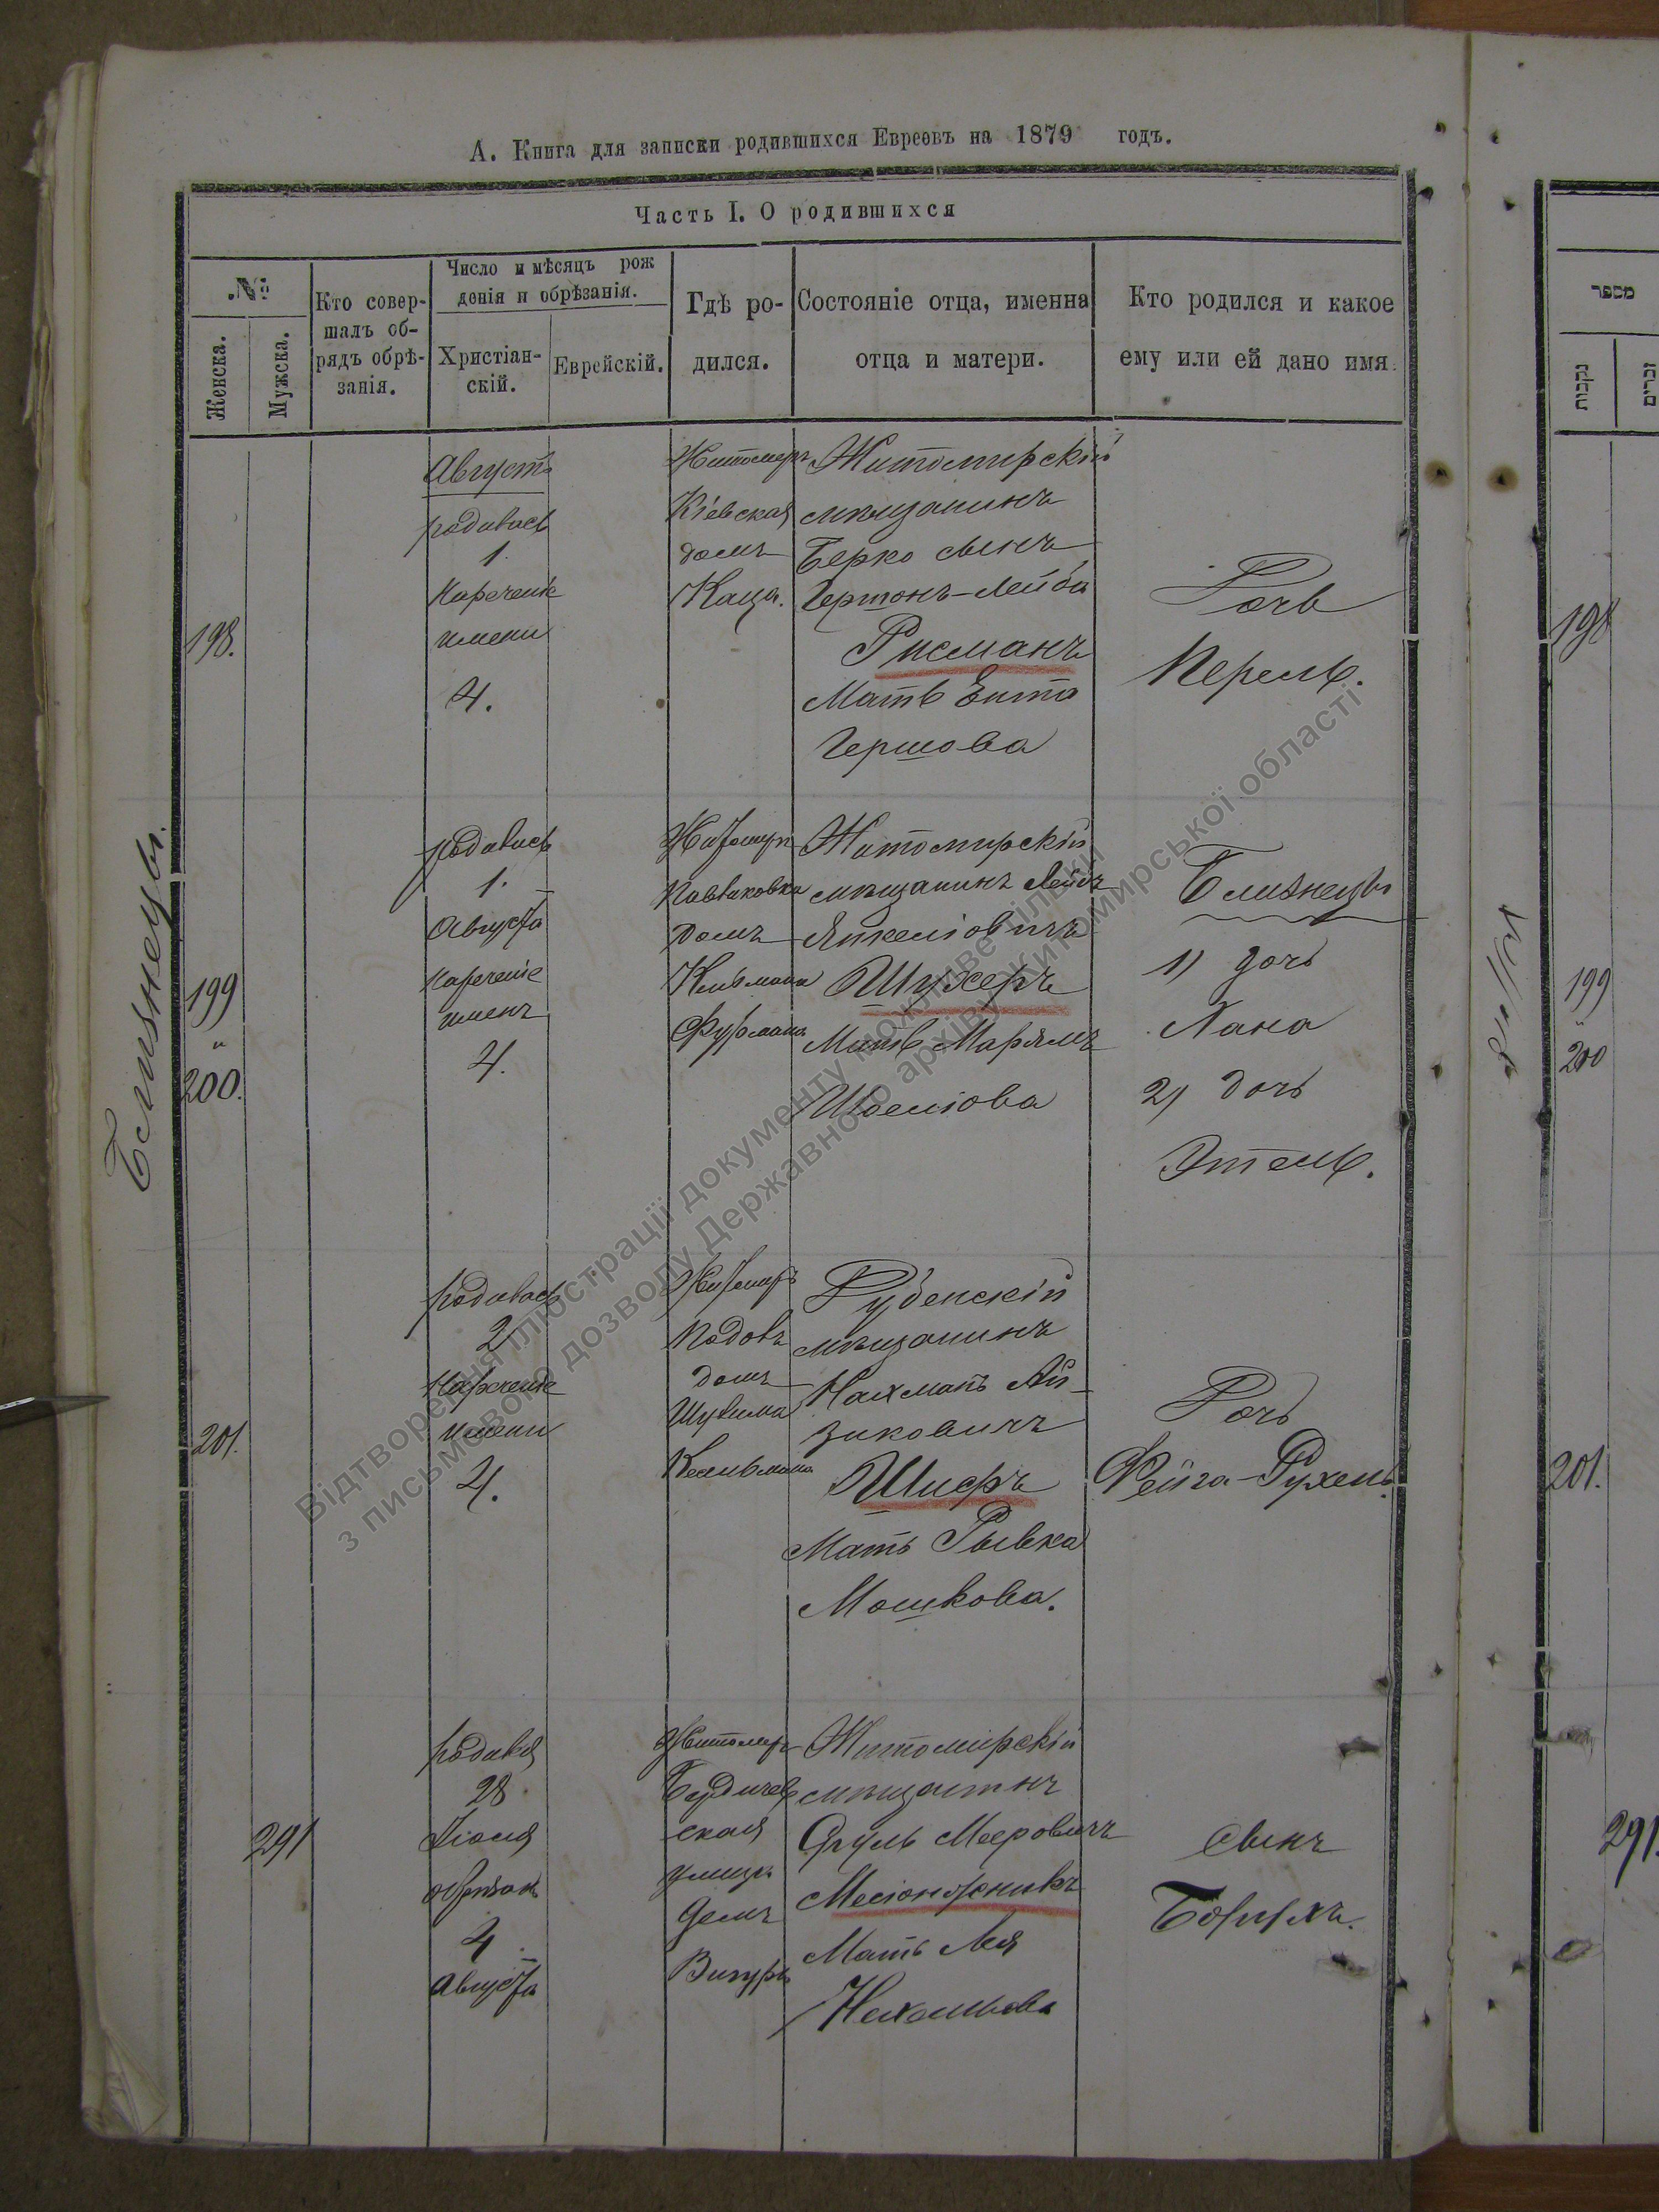 А. Книга для записки родившихся Евреевъ на 1879 годъ.
Часть I. О родившихся
№
Женска.
Мужска.
Кто совер-
шалъ об-
рядъ обрѣ-
занія.
Число и мѣсяцъ рож
денія и обрѣзанія.
Христіан-
скій.
Еврейскій.
Гдѣ ро-
дился.
Состояніе отца, именна
отца и матери.
Кто родился и какое
ему или ей дано имя.
198.
Августъ
родилась
1.
Нареченіе
имени
4.
Житомиръ
Кіевская
домъ
Каца.
Житомирскій
мѣщанинъ
Берко сынъ
-Лейба
Рисманъ
Мать Ента
Гершова
Дочь
Перель.
Близнецы.
199
"
200.
родилась
1.
Августа
Нареченіе
именъ
4.
Житомиръ
домъ
Кельмана
Фурмана
Житомирскій
мѣщанинъ Лейбъ
Янкеліовичъ
Шухеръ
Мать Марьямъ
Шоеліова
Близнецы
1) дочь
Хана
2) дочь
Этель.
201.
родилась
2
Нареченіе
имени
4.
Житомиръ
домъ
Дубенскій
мѣщанинъ
Нахманъ Ай-
зиковичъ
Шифъ
Мать Рывка
Мошкова.
Дочь
Фейга-Рухель.
291
родился
28
Іюля
обрѣзанъ
4
Августа
Житомиръ
Бердичев
ская
улица
домъ
Житомирскій
мѣщанинъ
Сруль Мееровичъ
Мать Лея
Сынъ
Борухъ.
מספר
נקבות
זכרים
198
199
"
200
201.
291.
Відтворення ілюстрації документу можливе тільки
з письмового дозволу Державного архіву Житомирської області